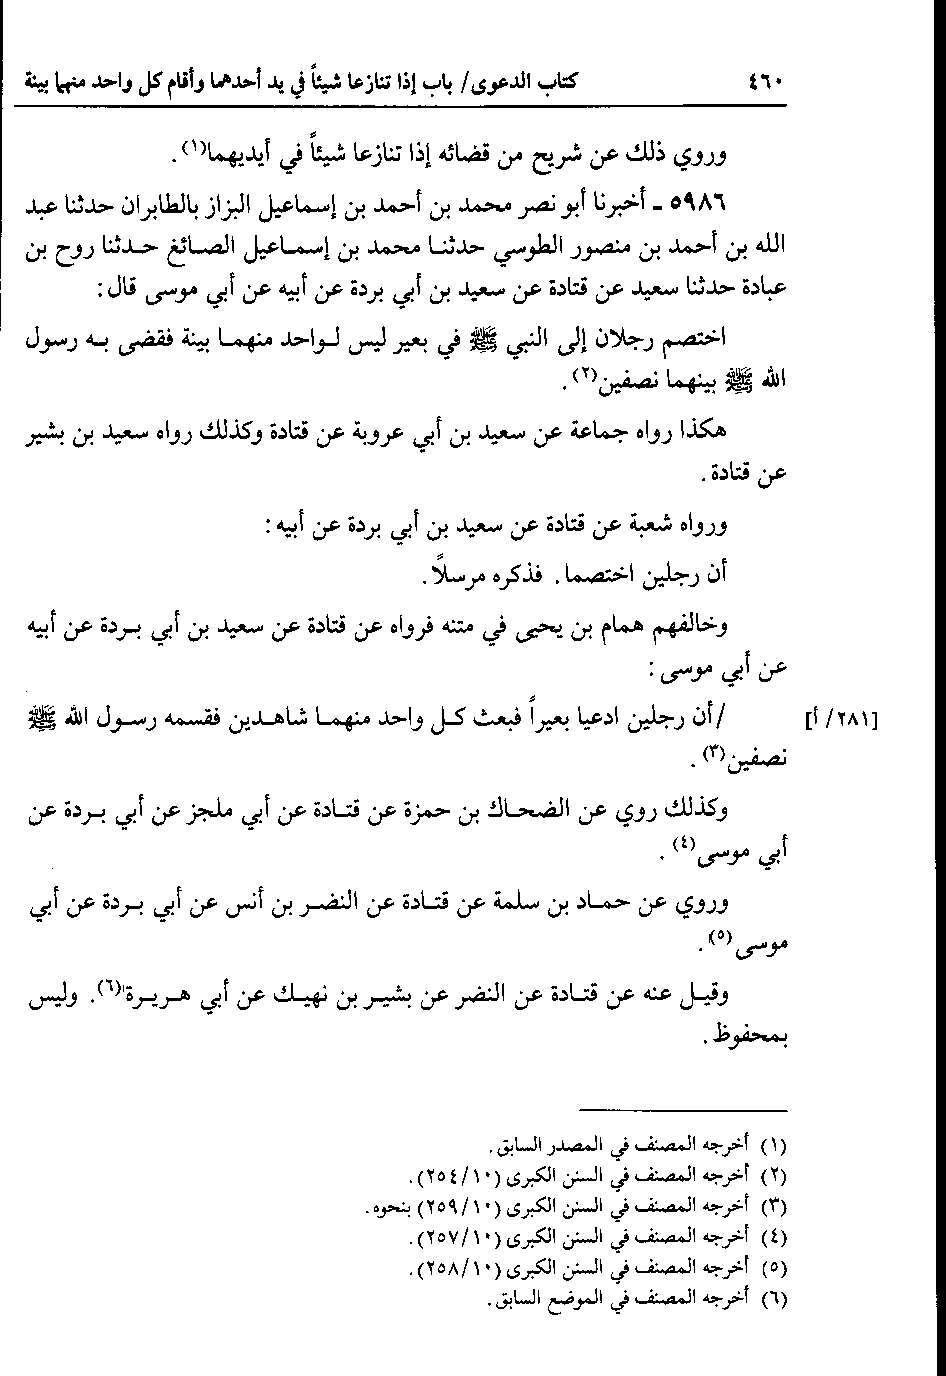 ٤٦٠ كتاب الدعوى/ باب إذا تنازعا شيئاً في يد أحدهما وأقام كل واحد منهما بينة
وروي ذلك عن شريح من قضائه إذا تنازعا شيئاً في أيديهما(١).
٥٩٨٦ ـ أخبرنا أبو نصر محمد بن أحمد بن إسماعيل البزاز بالطابران حدثنا عبد
الله بن أحمد بن منصور الطوسي حدثنا محمد بن إسماعيل الصائغ حدثنا روح بن
عبادة حدثنا سعيد عن قتادة عن سعيد بن أبي بردة عن أبيه عن أبي موسى قال:
اختصم رجلان إلى النبي ﷺ في بعير ليس لواحد منهما بينة فقضى به رسول
الله ﷺ بينهما نصفين(٢).
هكذا رواه جماعة عن سعيد بن أبي عروبة عن قتادة وكذلك رواه سعيد بن بشير
عن قتادة.
ورواه شعبة عن قتادة عن سعيد بن أبي بردة عن أبيه:
أن رجلين اختصما. فذكره مرسلاً.
وخالفهم همام بن يحيى في متنه فرواه عن قتادة عن سعيد بن أبي بردة عن أبيه
عن أبي موسى:
[٢٨١/ أ] /أن رجلين ادعيا بعيراً فبعث كل واحد منهما شاهدين فقسمه رسول الله ﷺ
نصفين(٣).
وكذلك روي عن الضحاك بن حمزة عن قتادة عن أبي ملجز عن أبي بردة عن
أبي موسى(٤).
وروي عن حماد بن سلمة عن قتادة عن النضر بن أنس عن أبي بردة عن أبي
موسى(٥).
وقيل عنه عن قتادة عن النضر عن بشير بن نهيك عن أبي هريرة(٦). وليس
بمحفوظ.
(١) أخرجه المصنف في المصدر السابق.
(٢) أخرجه المصنف في السنن الكبرى (٢٥٤/١٠).
(٣) أخرجه المصنف في السنن الكبرى (٢٥٩/١٠) بنحوه.
(٤) أخرجه المصنف في السنن الكبرى (٢٥٧/١٠).
(٥) أخرجه المصنف في السنن الكبرى (٢٥٨/١٠).
(٦) أخرجه المصنف في الموضع السابق.